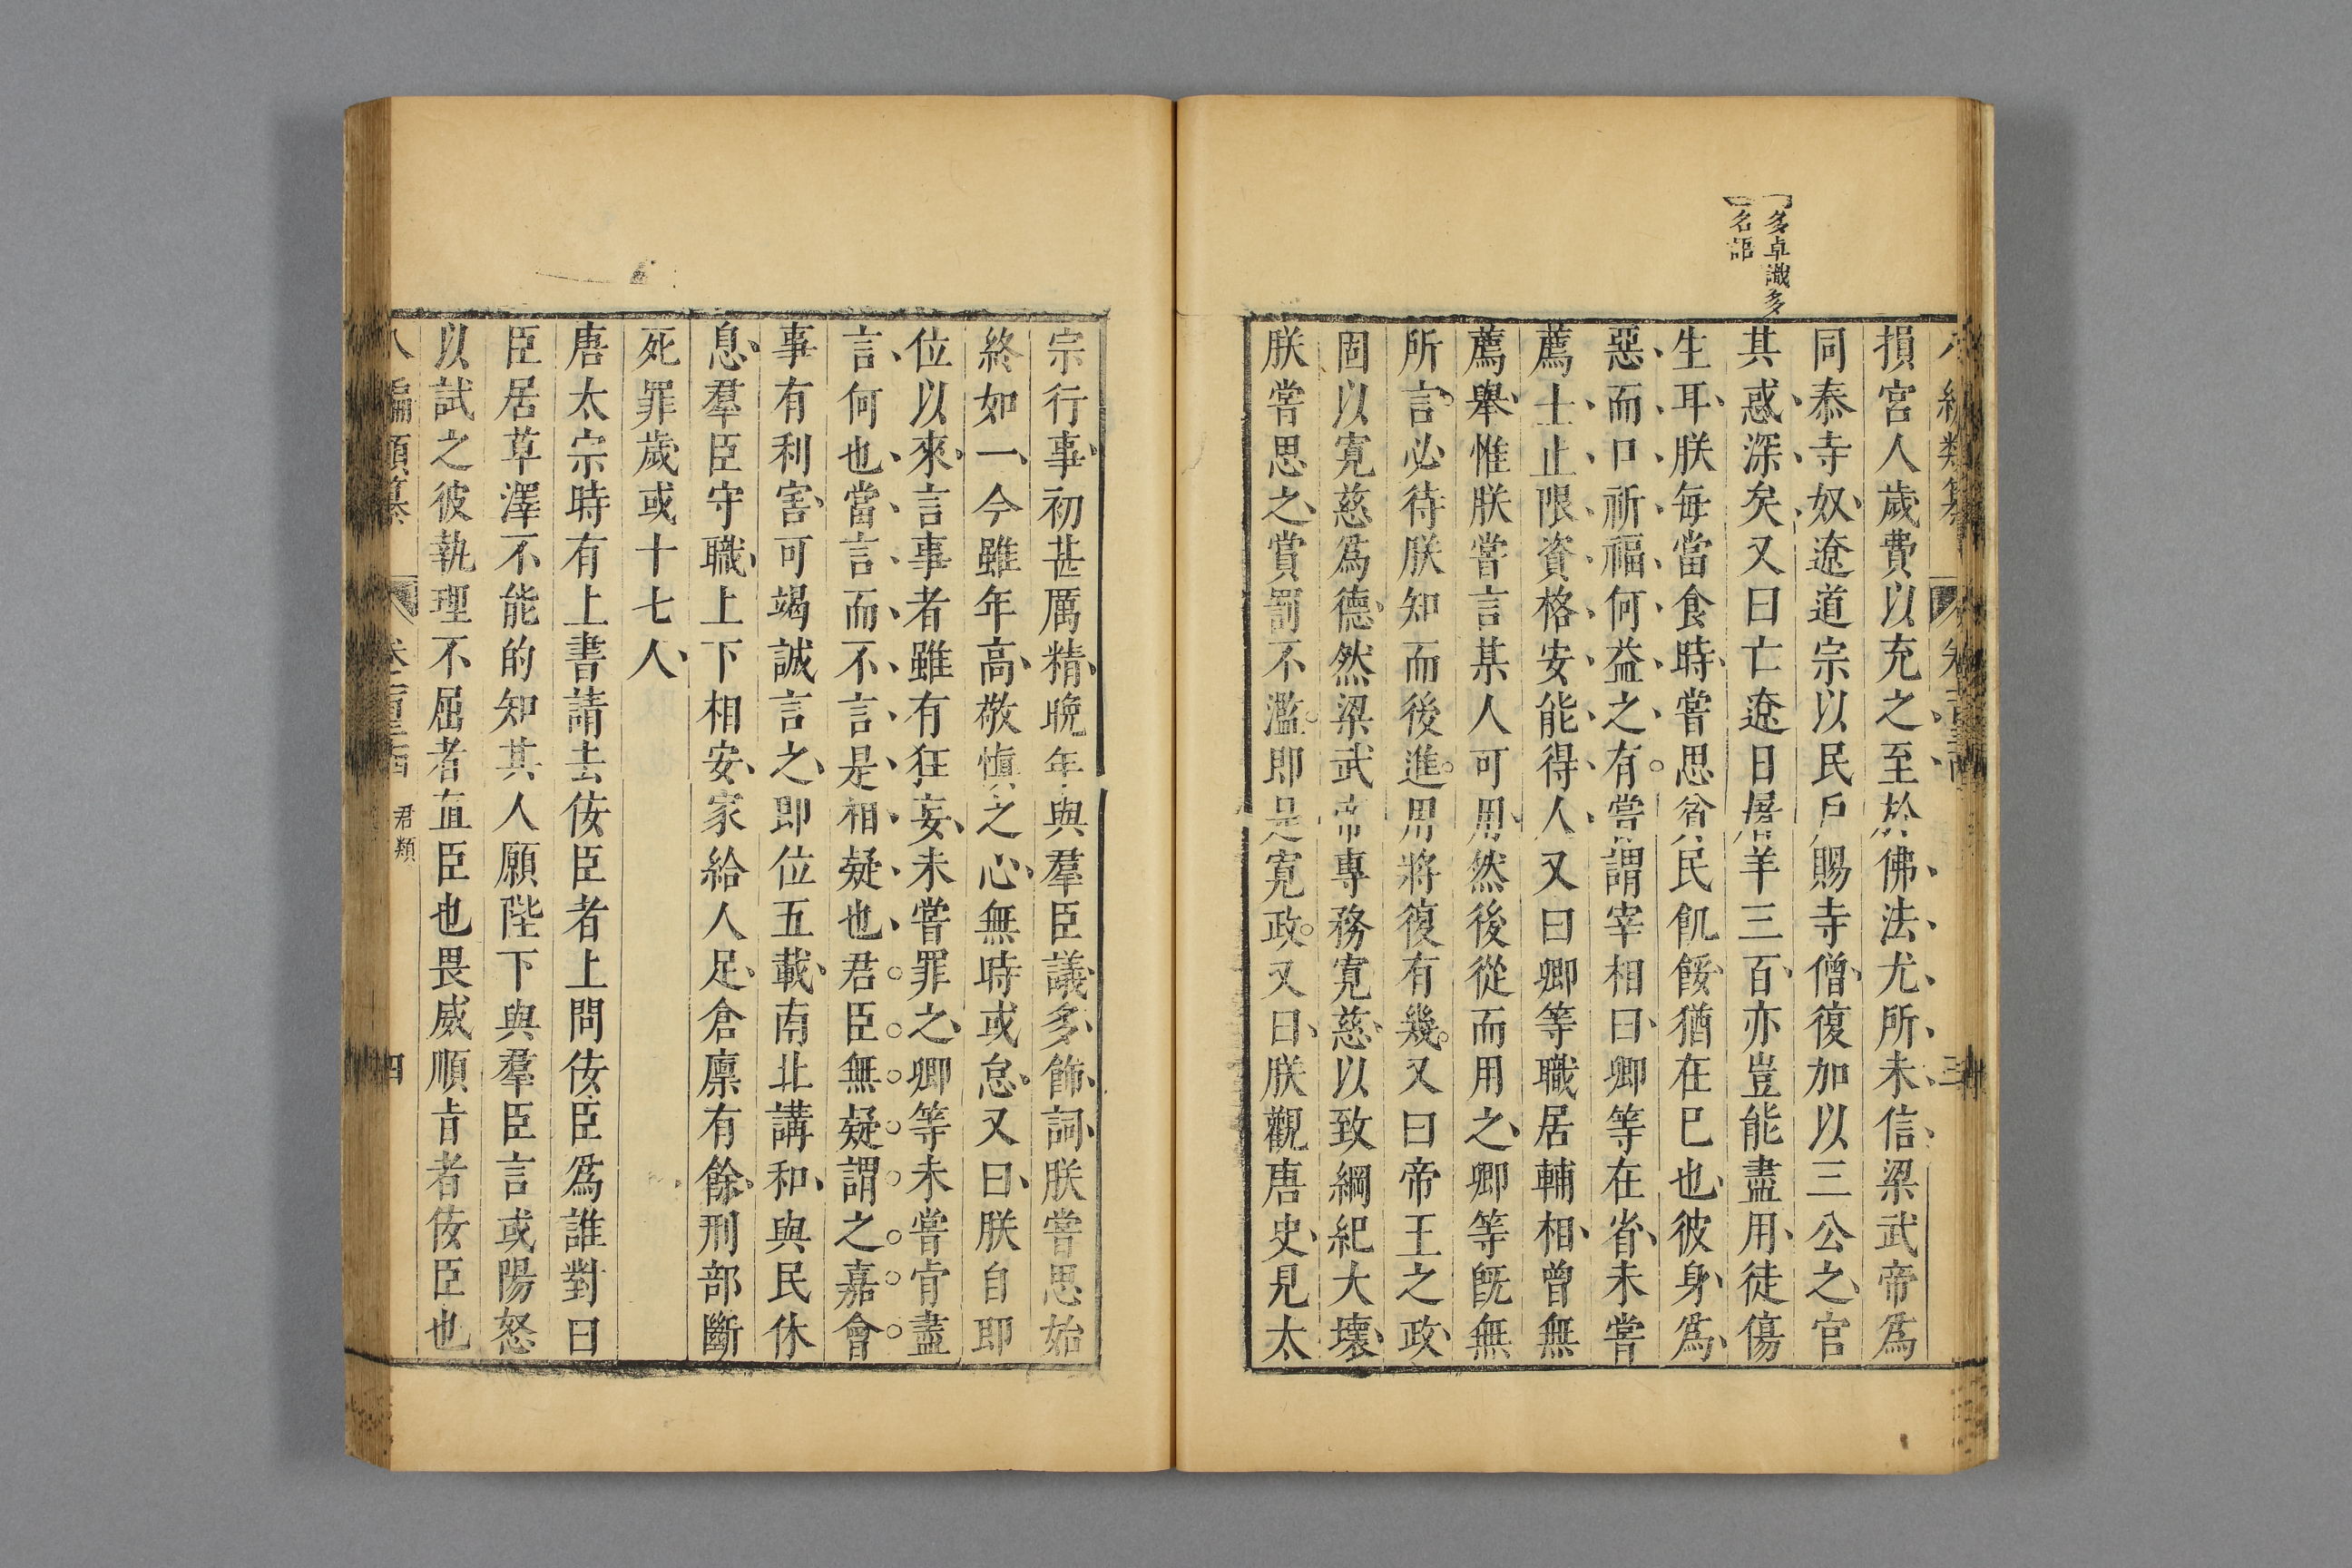 多卓識多
名語
損宮人歲費以充之至於佛法尤所未信梁武帝爲
同泰寺奴遼道宗以民戶賜寺僧復加以三公之官
其惑深矣又曰亡遼日屠羊三百亦豈能盡用徒傷
生耳朕每當食時嘗思貧民飢餒猶在已也彼身爲
惡而口祈福何益之有嘗謂宰相曰卿等在省未嘗
薦士止限資格安能得人又曰卿等職居輔相曾無
薦舉惟朕嘗言某人可用然後從而用之卿等旣無
所言必待朕知而後進用將復有幾又曰帝王之政
固以寬慈爲德然梁武帝專務寬慈以致綱紀大壞
朕嘗思之賞罰不濫即是寬政又曰朕觀唐史見太
宗行事初甚厲精晚年與羣臣議多飾詞朕嘗思始
終如一今雖年高敬慎之心無時或怠又曰朕自即
位以來言事者雖有狂妄未嘗罪之卿等未嘗肯盡
言何也當言而不言是相疑也君臣無疑謂之嘉會
事有利害可竭誠言之即位五載南北講和與民休
息羣臣守職上下相安家給人足倉廩有餘刑部斷
死罪歲或十七人
唐太宗時有上書請去佞臣者上問佞臣爲誰對曰
臣居草澤不能的知其人願陛下與羣臣言或陽怒
以試之彼執理不屈者直臣也畏威順旨者佞臣也
八編類纂
君類
四